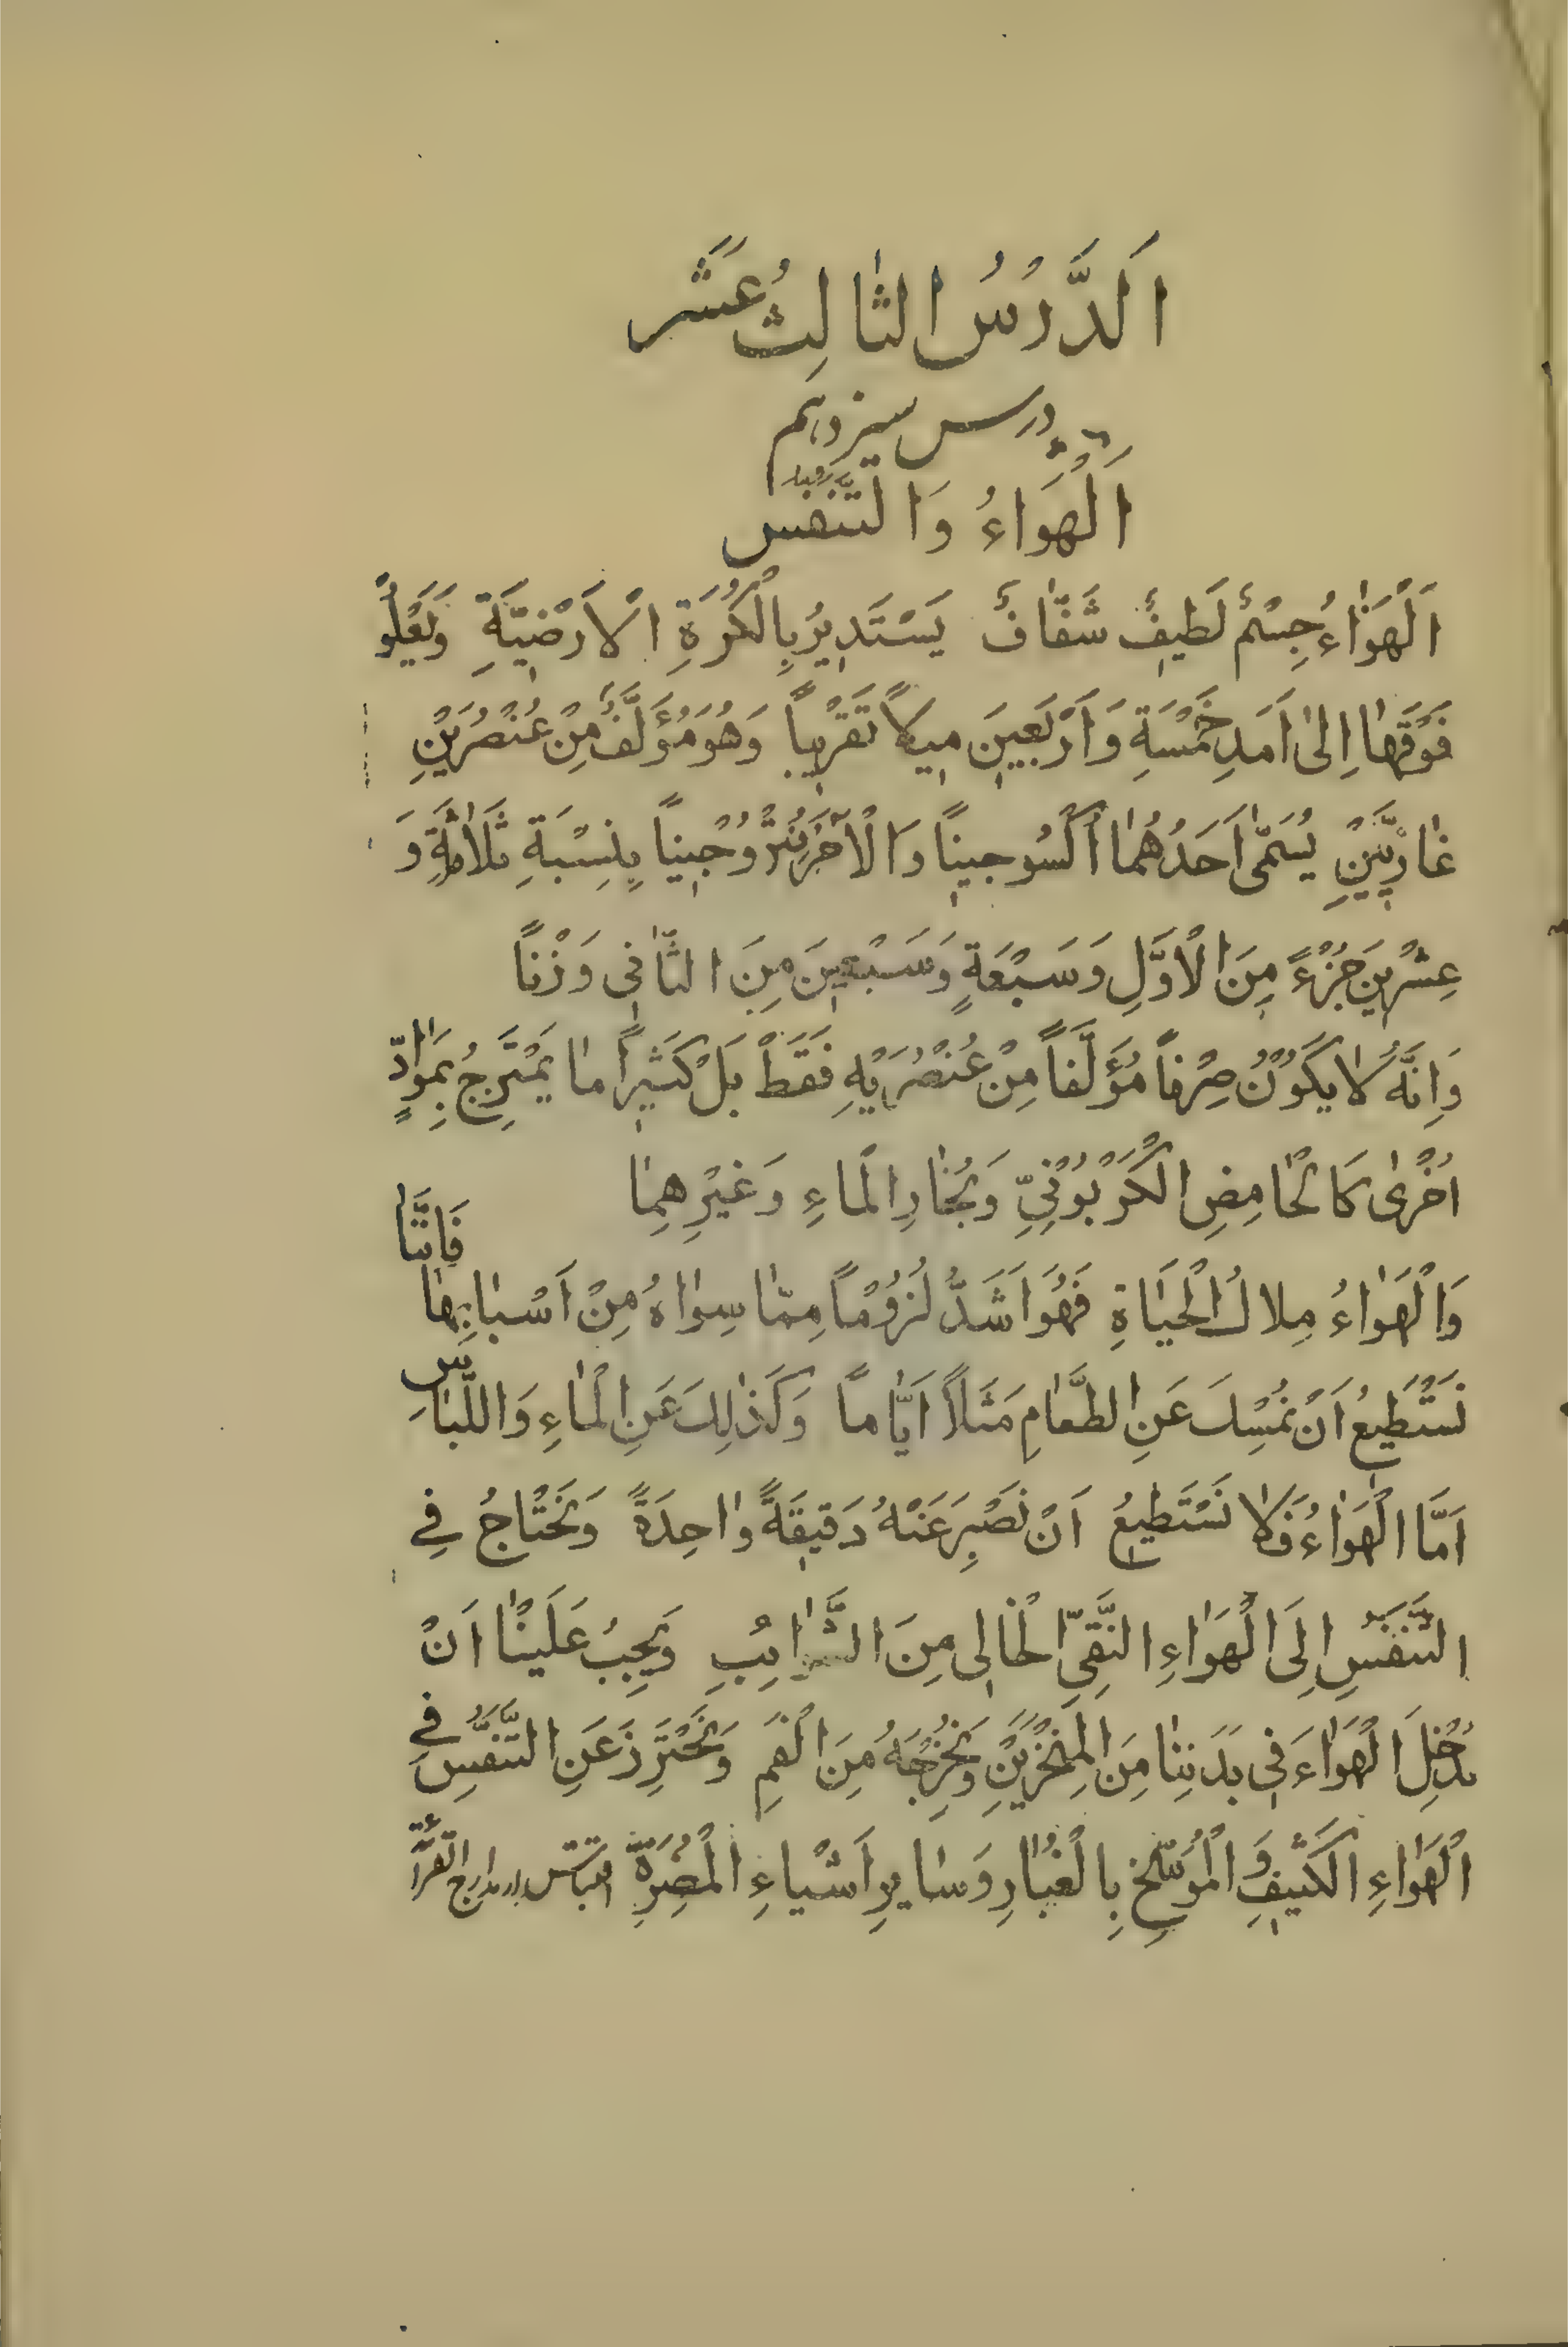 اَلدَّرْسُ الثٰالِثُ عَشَر
درس سیزدهم
اَلْهَوَاءُ وَالتَّنَفُّس
اَلْهَوٰاءُ جِسْمٌ لَطيفٌ شَفّٰافٌ يَسْتَديرُ بِالْكُرَةِ الْاَرْضِيَّةِ وَيَعْلُو
فَوْقَهٰا اِلىٰ اَمَدِ خَمْسَةِ وَاَرْبَعينَ ميلاً تَقْريباً وَهُوَ مُؤَلَّفٌ مِنْ عُنْصُرَيْنِ
غٰازِيَّيْنِ يُسَمّىٰ اَحَدُهُمٰا اُكْسُوجيناً وَالْآخَرُ نِتْرُوُجيناً بِنِسْبَةِ ثَلاٰثَةٍ وَ
عِشْرينَ جُزْءً مِنَ الْاَوَّلِ وَسَبْعَةٍ وَسَبْعينَ مِنَ الثّٰانى وَزْناً
وَاِنَّهُ لاٰيَكُوُنُ صِرْفاً مُؤَلَّفاً مِنْ عُنْصُرَيْهِ فَقَطْ بَلْ كَثيراً مٰا يَمْتَزِجُ بِمَوٰادٍّ
اُخْرىٰ كَالْحٰامِضِ الْكَرْبوُنِىِّ وَبُخٰارِ الْمٰاءِ وَغَيْرِهِمٰا
وَالْهَوٰاءُ مِلاكُ الْحَيٰاةِ فَهُوَ اَشَدُّ لُزُوُماً مِمّٰا سِوٰاهُ مِنْ اَسْبٰابِهٰا فَاِنَّنٰا
نَسْتَطيعُ اَنْ نُمْسِكَ عَنِ الطَّعٰامِ مَثَلاً اَيّٰاماً وَكَذٰلِكَ عَنِ الْمٰاءِ وَاللِّبٰاسِ
اَمَّا الْهَوٰاءُ فَلاٰ نَسْتَطيعُ اَنْ نَصْبِرَ عَنْهُ دَقيقَةً وٰاحِدَةً وَنَحْتٰاجُ فِى
التَّنَفُّسِ اِلَى الْهَوٰاءِ النَّقِىِّ الْخٰالى مِنَ الشَّوٰايِبِ وَيَجِبُ عَلَيْنٰا اَنْ
نُدْخِلَ الْهَوٰاءَ فى بَدَنِنٰا مِنَ الْمِنْخَرَيْنِ وَنُخْرِجَهُ مِنَ الْفَمِ وَنَحْتَرِزَ عَنِ التَّنَفُّسِ فِى
الْهَوٰاءِ الْكَثيفِ وَ الْمُوَسَّخِ بِالْغُبٰارِ وَسٰايِرِ اَشْيٰاءِ الْمُضِرَّةِ اقتباس از مدارج القرائة